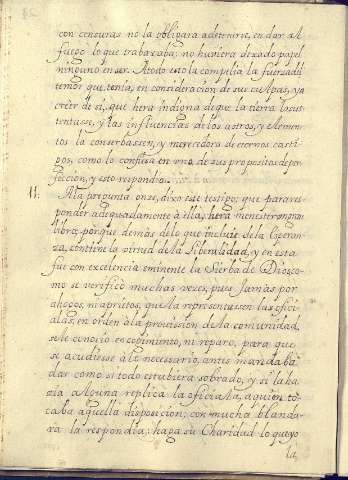 con censuras no la obligara a detenerse, en dar al
fuego lo que trabaxaba: no huviera dexado papel
ninguno en ser. A todo esto la compelia la fuersa del
temor que tenia, en consideracion de sus culpas, y a
creer de si, que hera indigna de que la tierra la sus-
tentasse, y las influencias de los astros, y elemen-
tos la conserbassen, y merecedora de eternos casti-
gos, como lo confiesa en uno de sus propositos de per-
feccion, y esto respondio.
11. A la pregunta onze, dixo este testigo; que para res-
ponder adequadamente à ella, hera menester un gran
libro, porque demàs de lo que incluie de la Esperan-
za, contiene la virtud de la Liberalidad, y en esta
fue con excelencia eminente la Sierba de Dios, co-
mo se verificó muchas vezes, pues Jamas por
ahogos, ni aprietos, que la representassen las ofici-
alas, en orden à la provission de la comunidad,
se le conocio encogimiento, ni reparo, para que
se acudiesse a lo necessario, antes mandaba
dar como si todo estubiera sobrado, y si la ha-
zia alguna replica la oficiala, a quien to-
caba aquella disposicion; con mucha blandu-
ra la respondia: haga su Charidad lo que yo
la